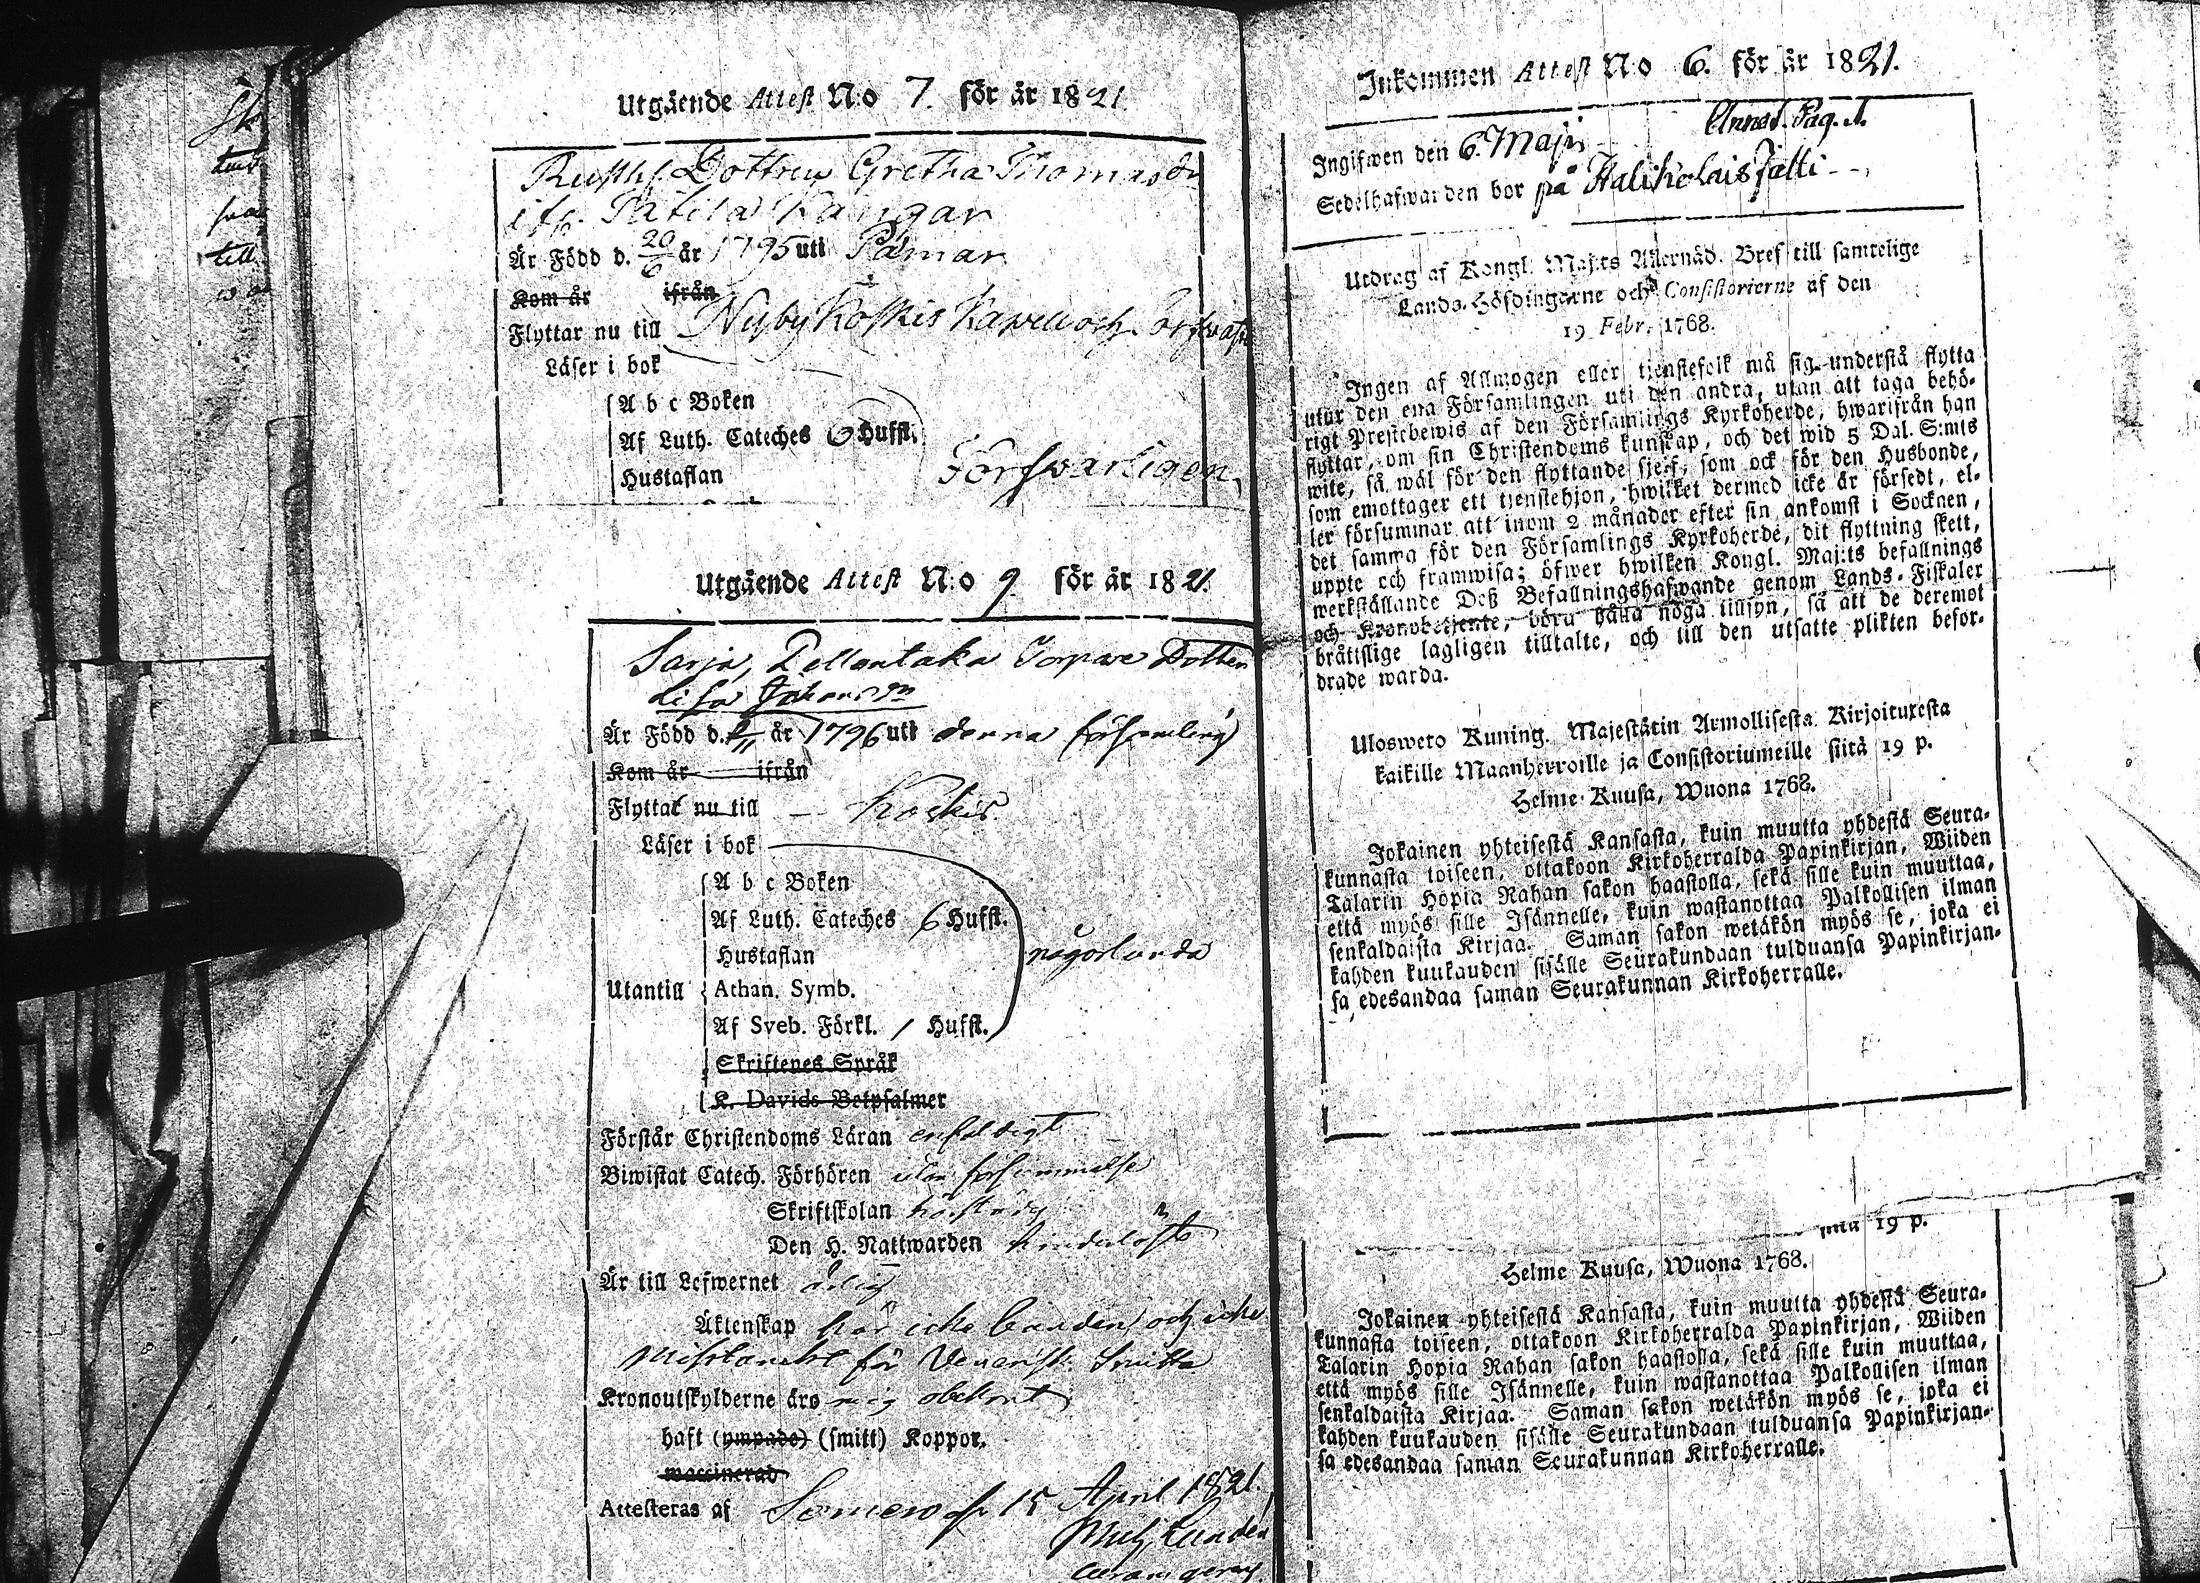 Utgående Attest N:o 7. för år 1821.
Rusth. Dottren Gretha Thomasdr
Är Född d. 20/6 år 1795 uti Pämar
Kom år ifrån
Flyttar nu till Nyby Koskis Kapell och
Läser i bok
A b c Boken
Af Luth. Cateches 6 Hufst.
Hustaflan
Försvarligen
Utgående Attest N:o 9. för år 1821.
Sarja, Torpare Dottren
Lisa Johansdr
Är Född d. år 1796 uti denna församling
Kom år ifrån
Flyttat nu till Koskis
Läser i bok
A b c Boken
Af Luth. Cateches 6 Hufst.
Hustaflan
någorlunda
Utantill Athan. Symb.
Af Sveb. Förkl. / Hufst.
Skriftenes Språk
K. Davids Botpsalmer
Förstår Christendoms Läran enfaldigt
Biwistat Catech. Förhören utan försummelse
Skriftskolan
Den H. Nattwarden
Är till Lefwernet ärlig
Äktenskap här icke bunden och icke
misstänkt för Venerisk Smitta
Kronoutskylderne äro mig obekant
haft (ympade) (smitt) Koppor.
waccinerad
Attesteras af Somero d. 15 April 1821.
Inkommen Attest N:o 6. för år 1821.
Annot. Pag. 1.
Ingifwen den 6. Maji
Sedelhafwarden bor på Halikolais Jälli
Utdrag af Kongl. Maj:ts Allernåd. Bref till samtelige
Lands-Höfdingarne och Consistorierne af den
19 Febr. 1768.
Ingen af Allmogen eller tjenstefolk må sig understå flytta
utur den ena Församlingen uti den andra, utan att taga behö-
rigt Prestebewis af den Församlings Kyrkoherde, hwarifrån han
flyttar, om sin Christendoms kunskap, och det wid 5 Dal. S:mts
wite, så wäl för den flyttande sjelf, som ock för den Husbonde,
som emottager ett tjenstehjon, hwilket dermed icke är försedt, el-
ler försummar att inom 2 månader efter sin ankomst i Socknen,
det samma för den Församlings Kyrkoherde, dit flyttning skett,
uppte och framwisa; öfwer hwilken Kongl. Maj:ts befallnings
werkställande Deß Befallningshafwande genom Lands-Fiskaler
och Kronobetjente, böra hålla noga tillsyn, så att de deremot
bråtislige lagligen tilltalte, och till den utsatte plikten befor-
drade warda.
Ulosweto Kuning. Majestätin Armollisesta Kirjoituxesta
kaikille Maanherroille ja Consistoriumeille siitä 19 p.
Helme-Kuusa, Wuona 1768.
Jokainen yhteisestä Kansasta, kuin muutta yhdestä Seura-
kunnasta toiseen, ottakoon Kirkoherralda Papinkirjan, Wiiden
Talarin Hopia Rahan sakon haastolla, sekä sille kuin muuttaa,
että myös sille Isännelle, kuin wastanottaa Palkollisen ilman
senkaldaista Kirjaa. Saman sakon wetäkön myös se, joka ei
kahden kuukauden sisälle Seurakundaan tulduansa Papinkirjan-
sa edesandaa saman Seurakunnan Kirkoherralle.
19 p.
Helme Kuusa, Wuona 1768.
Jokainen yhteisestä Kansasta, kuin muutta yhdestä Seura-
kunnasta toiseen, ottakoon Kirkoherralda Papinkirjan, Wiiden
Talarin Hopia Rahan sakon haastolla, sekä sille kuin muuttaa,
että myös sille Isännelle, kuin wastanottaa Palkollisen ilman
senkaldaista Kirjaa. Saman sakon wetäkön myös se, joka ei
kahden kuukauden sisälle Seurakundaan tulduansa Papinkirjan-
sa edesandaa saman Seurakunnan Kirkoherralle.